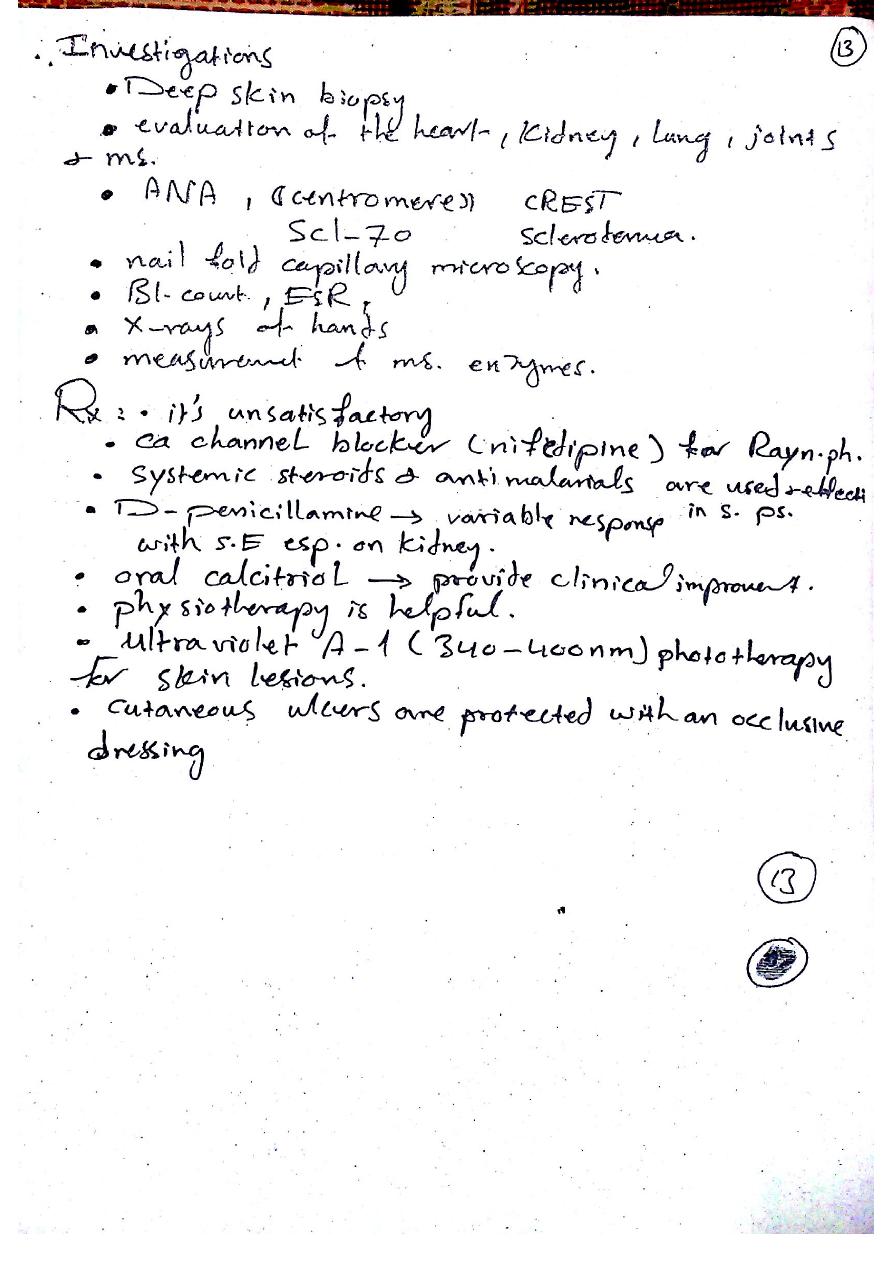 ∴ Investigations
13
• Deep skin biopsy
• evaluation of the heart, Kidney, Lung, joints
& ms.
• ANA, ((centromere)) CREST
Scl-70 scleroderma.
• nail fold capillary microscopy.
• Bl. count, ESR,
• X-rays of hands
• measurement of ms. enzymes.
Rx: • it's unsatisfactory
• ca channel blocker (nifedipine) for Rayn.ph.
• systemic steroids & antimalarials are used &
• D-penicillamine → variable response in s. ps.
with S.E esp. on kidney.
• oral calcitriol → provide clinical improvent.
• physiotherapy is helpful.
• ultraviolet A-1 (340-400nm) phototherapy
for skin lesions.
• cutaneous ulcers are protected with an occlusive
dressing
13